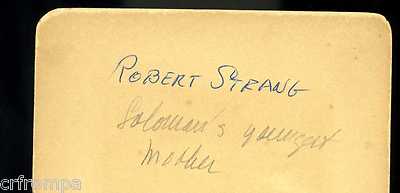 ROBERT STRANG
Soloman's younger
Mother
crfrompa